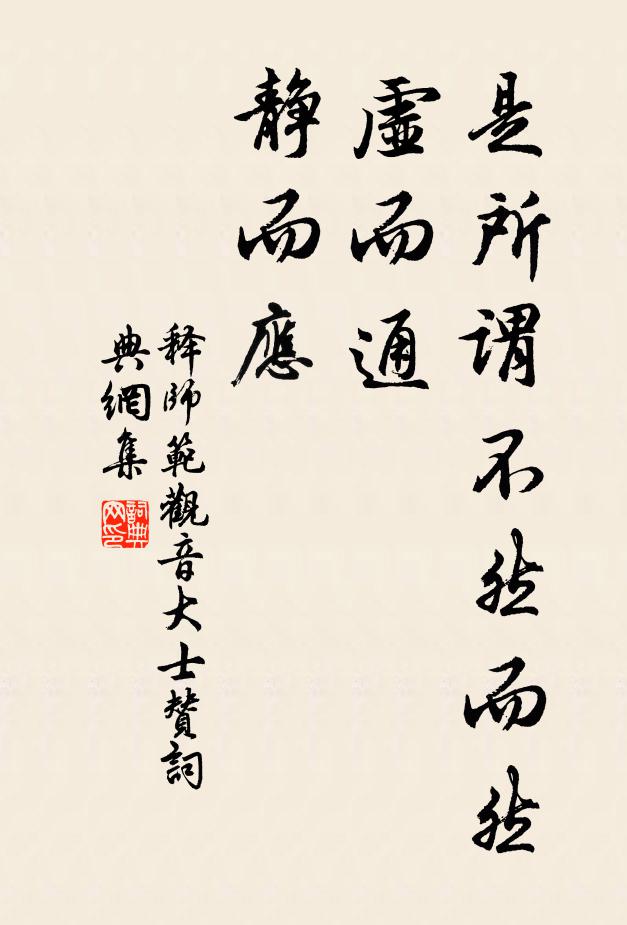 是所謂不然而然
虛而通
靜而應
释師範觀音大士贊詞
典網集
詞典
网印